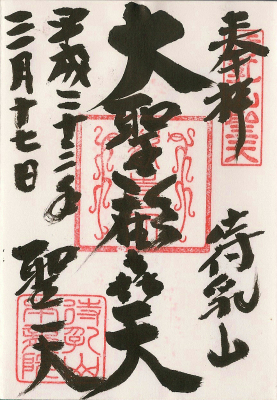 奉拝
待乳山
大聖歓喜天
聖天
平成二十二年
三月十七日